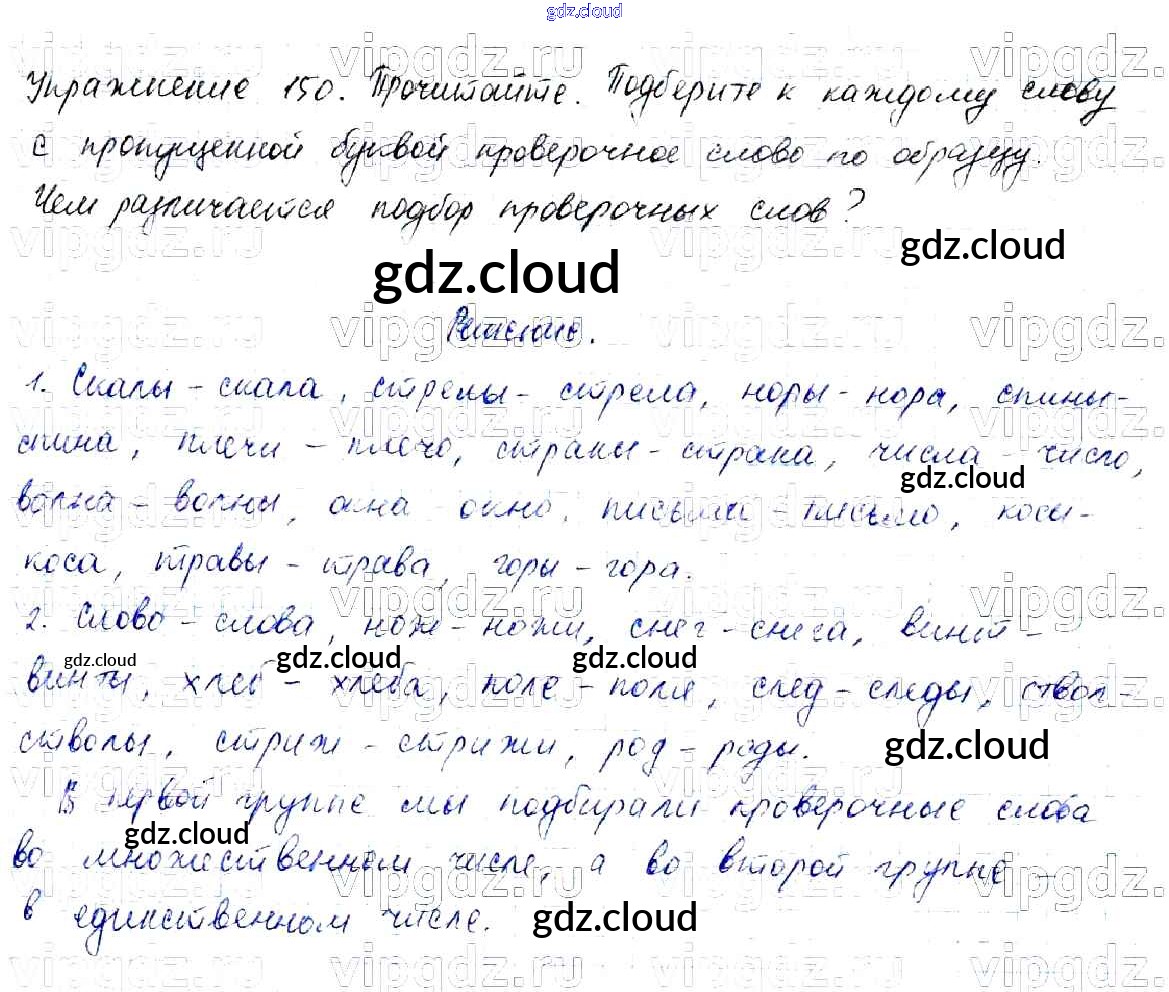 gdz.cloud
Упражнение 150. Прочитайте. Подберите к каждому слову
с пропущенной буквой проверочное слово по образцу.
Чем различается подбор проверочных слов?
gdz.cloud
gdz.cloud
Решение.
1. Скалы - скала, стрелы - стрела, норы - нора, спины -
спина, плечи - плечо, страны - страна, числа - число,
gdz.cloud
волна - волны, окна окно, письма - письмо, косы -
коса, травы - трава, горы - гора.
2. Слово - слова, нож - ножи, снег - снега, винт -
gdz.cloud gdz.cloud gdz.cloud
винты, хлеб - хлеба, поле - поля, след - следы, ствол -
стволы, стриж - стрижи, род - роды.
gdz.cloud
В первой группе мы подбирали проверочные слова
gdz.cloud
во множественном числе, а во второй группе -
в единственном числе.
gdz.cloud
vipgdz.ru